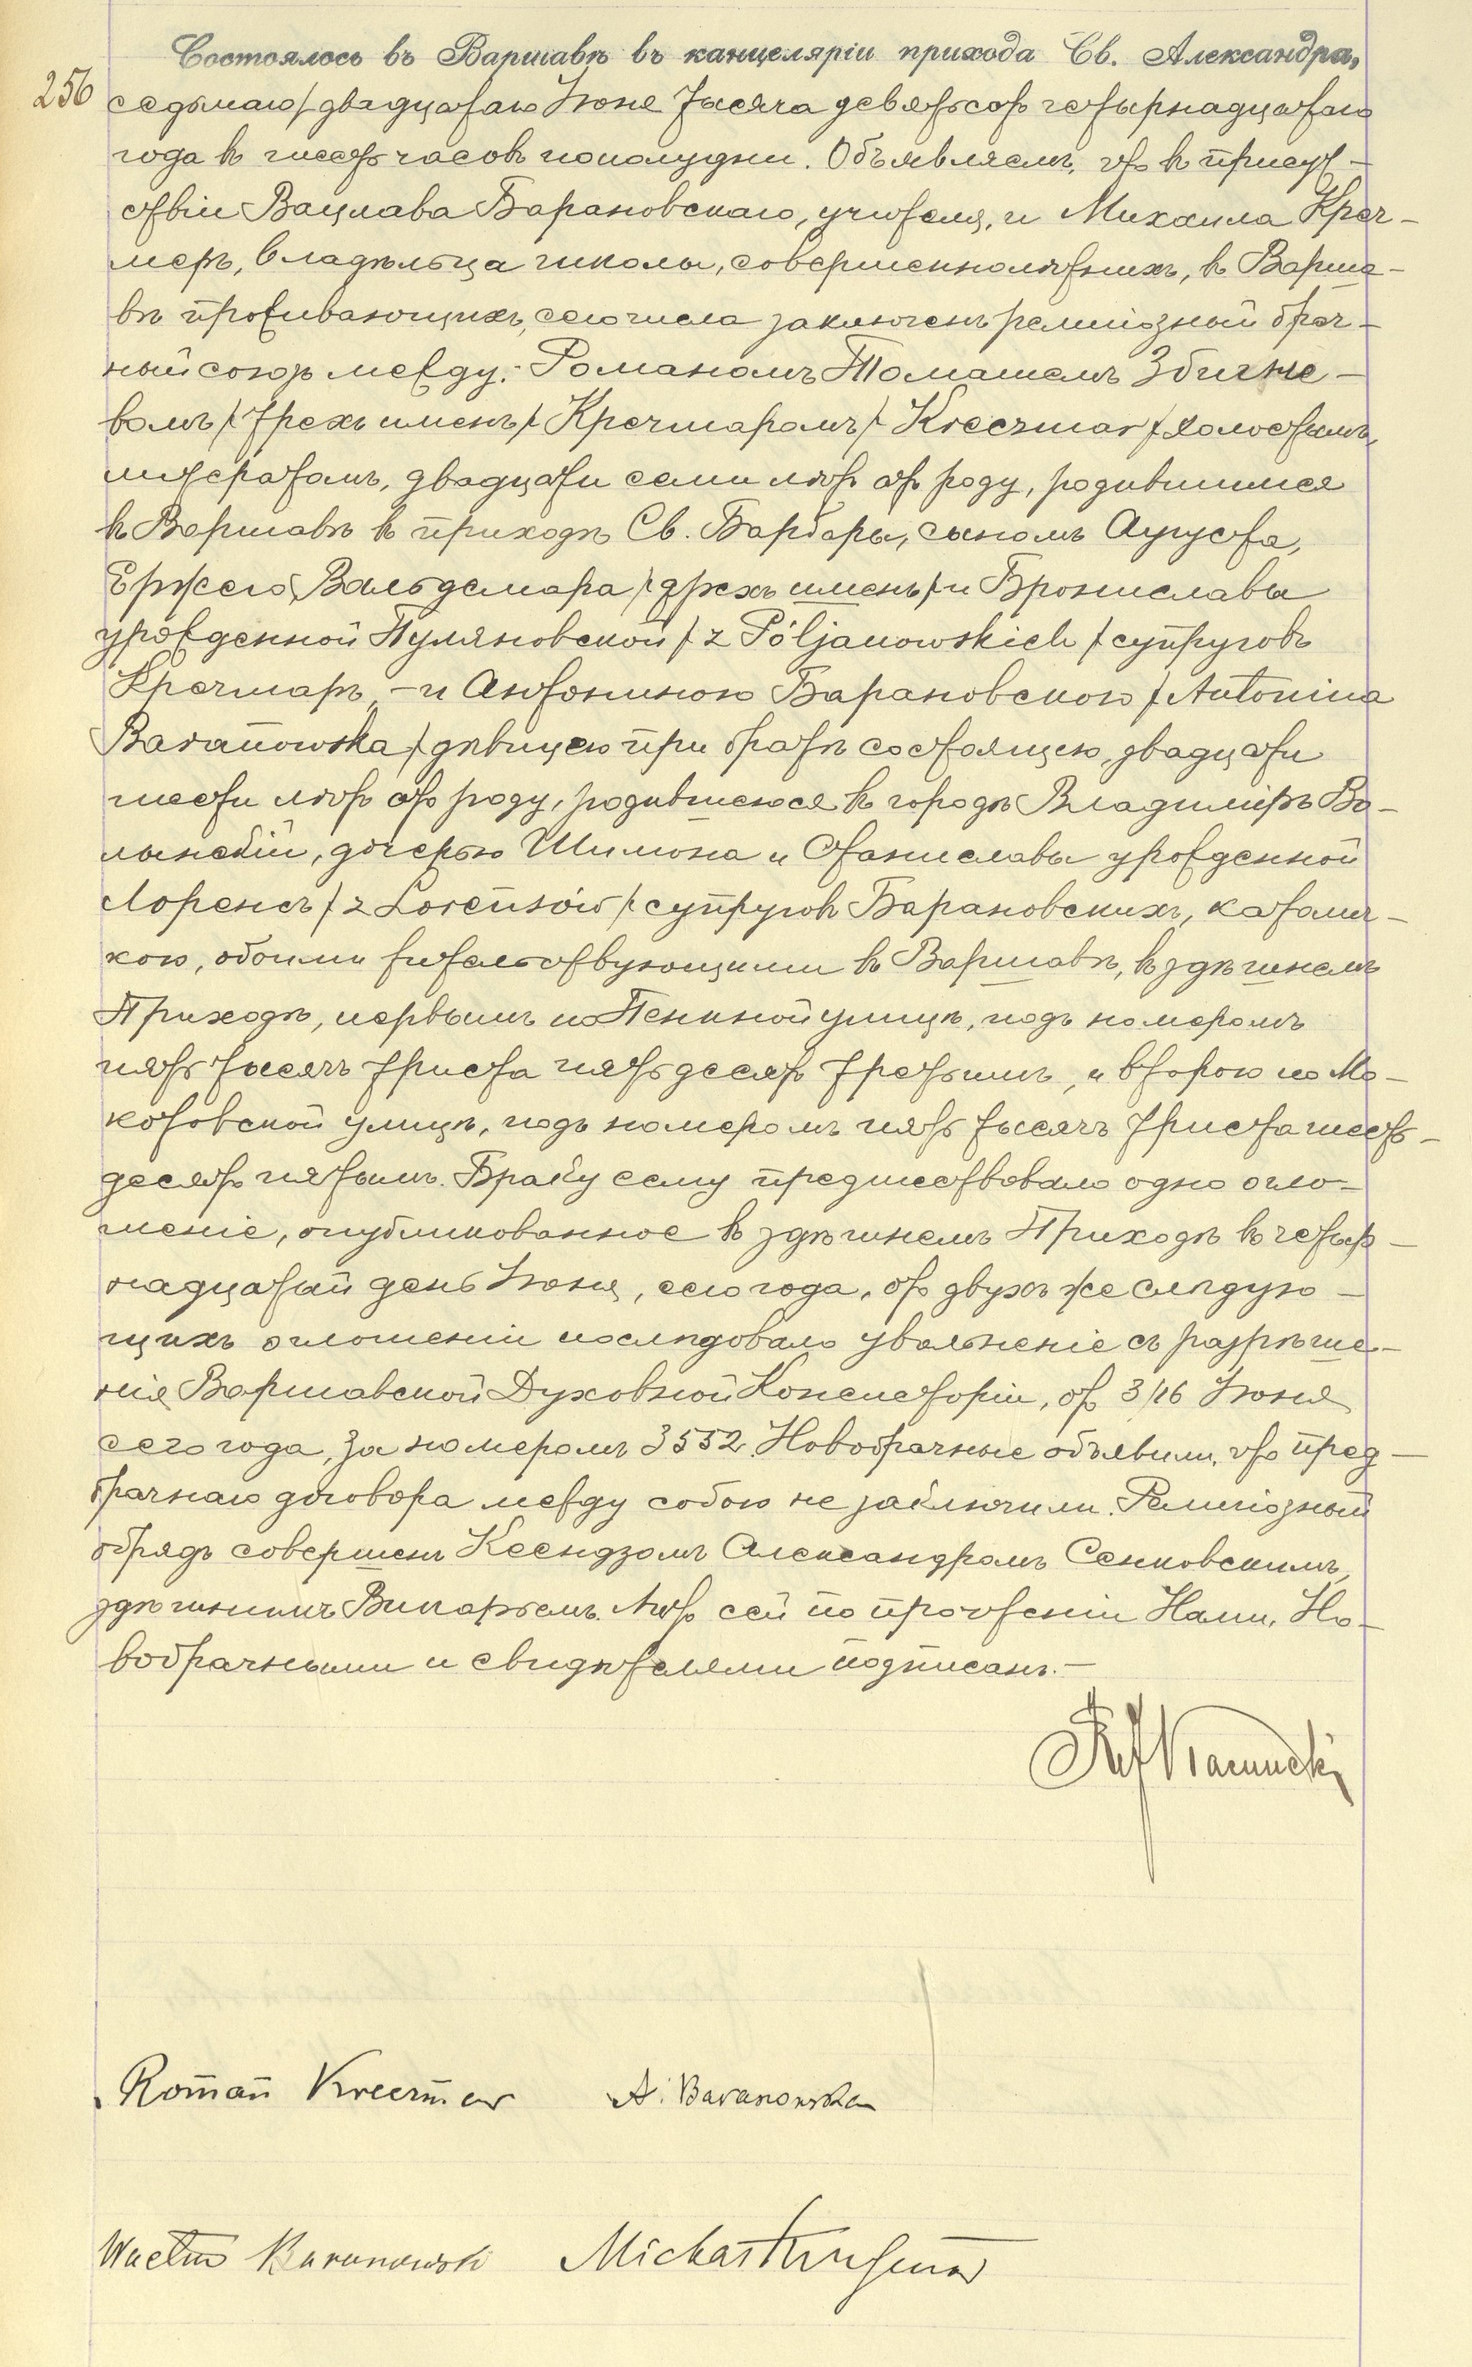 Состоялось въ Варшавѣ въ канцеляріи прихода Св. Александра,
256 седьмаго / двадцатаго Іюня тысяча девятьсотъ четырнадцатаго
года въ шесть часовъ пополудни. Объявляемъ, что въ присут-
ствіи Вацлава Барановскаго, учителя, и Михаила Креч-
меръ, владѣльца школы, совершеннолѣтнихъ, въ Варша-
вѣ проживающихъ, сего числа заключенъ религіозный брач-
ный союзъ между: Романомъ Томашемъ Збигне-
вомъ / трехъ именъ / Кречмаромъ / Kreczmar / холостымъ,
литератомъ, двадцати семи лѣтъ отъ роду, родившимся
въ Варшавѣ въ приходѣ Св. Барбары, сыномъ Августа,
Ержего, Вальдемара / трехъ именъ / и Брониславы
урожденной Пуляновской / z Póljanowskich / супруговъ
Кречмаръ, - и Антониною Барановскою / Antonina
Baranowska / дѣвицею при братѣ состоящею, двадцати
шести лѣтъ отъ роду, родившеюся въ городѣ Владиміръ Во-
лынскій, дочерью Шимона и Станиславы урожденной
Лоренсъ / z Lorensów / супруговъ Барановскихъ, католич-
кою, обоими жительствующими въ Варшавѣ, въ здѣшнемъ
Приходѣ, первымъ по Пенкной улицѣ, подъ номеромъ
пять тысячъ триста пятьдесятъ третьимъ, и второю по Мо-
котовской улицѣ, подъ номеромъ пять тысячъ триста шесть-
десятъ пятымъ. Браку сему предшествовало одно огло-
шеніе, опубликованное въ здѣшнемъ Приходѣ въ четыр-
надцатый день Іюня, сего года, отъ двухъ же слѣдую-
щихъ оглошеній послѣдовало увольненіе съ разрѣше-
нія Варшавской Духовной Консисторіи, отъ 3/16 Іюня
сего года, за номеромъ 3532. Новобрачные объявили, что пред-
брачнаго договора между собою не заключили. Религіозный
обрядъ совершенъ Ксендзомъ Александромъ Сенковскимъ,
здѣшнимъ Викаріемъ. Актъ сей по прочтеніи Нами, Но-
вобрачными и свидѣтелями подписанъ. -
Roman Kreczmar A. Baranowska
Wacław Baranowski Michał Kreczmar